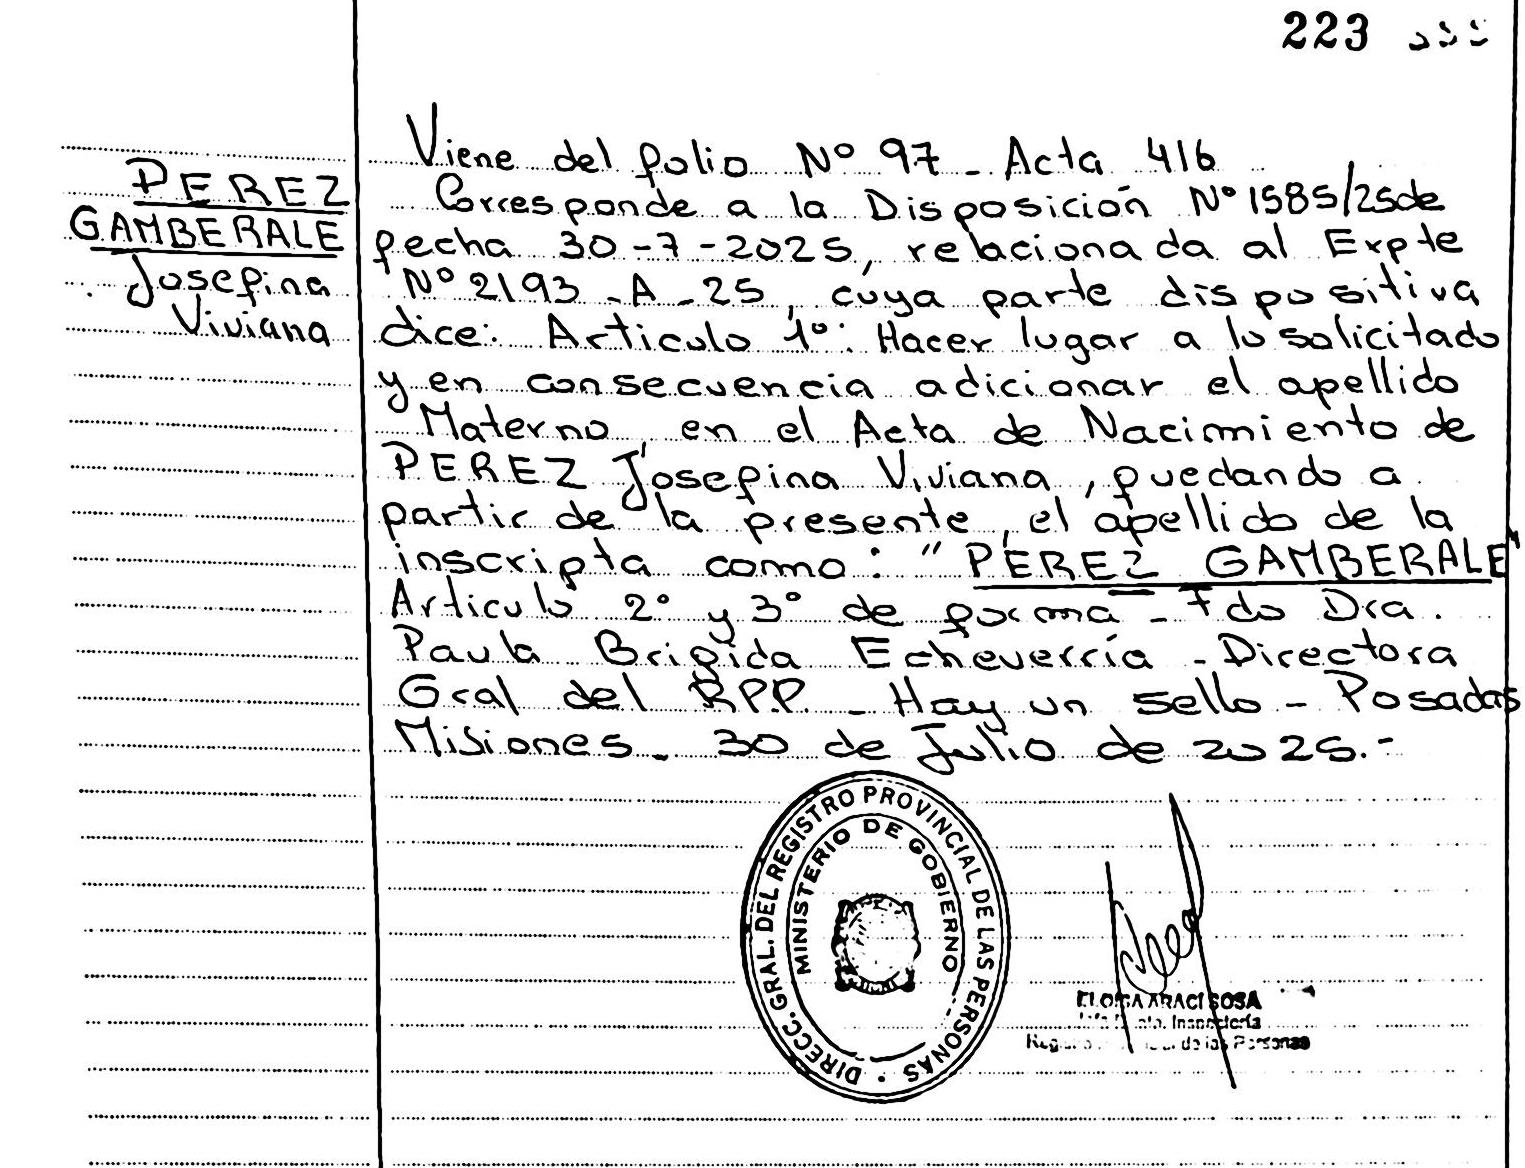 223
PEREZ
GAMBERALE
Josefina
Viviana
Viene del folio Nº 97 - Acta 416
Corresponde a la Disposición Nº 1585/25 de
fecha 30-7-2025, relacionada al Expte
Nº 2193-A-25, cuya parte dispositiva
dice: Articulo 1º: Hacer lugar a lo solicitado
y en consecuencia adicionar el apellido
Materno, en el Acta de Nacimiento de
PEREZ Josefina Viviana, quedando a
partir de la presente, el apellido de la
inscripta como: "PEREZ GAMBERALE"
Articulo 2º y 3º de forma - Fdo Dra.
Paula Brigida Echeverría - Directora
Gral del R.P.P. - Hay un sello - Posadas
Misiones - 30 de Julio de 2025.-
DIRECC. GRAL. DEL REGISTRO PROVINCIAL DE LAS PERSONAS
MINISTERIO DE GOBIERNO
ELOISA ARACI SOSA
Inspectoría
de las Personas